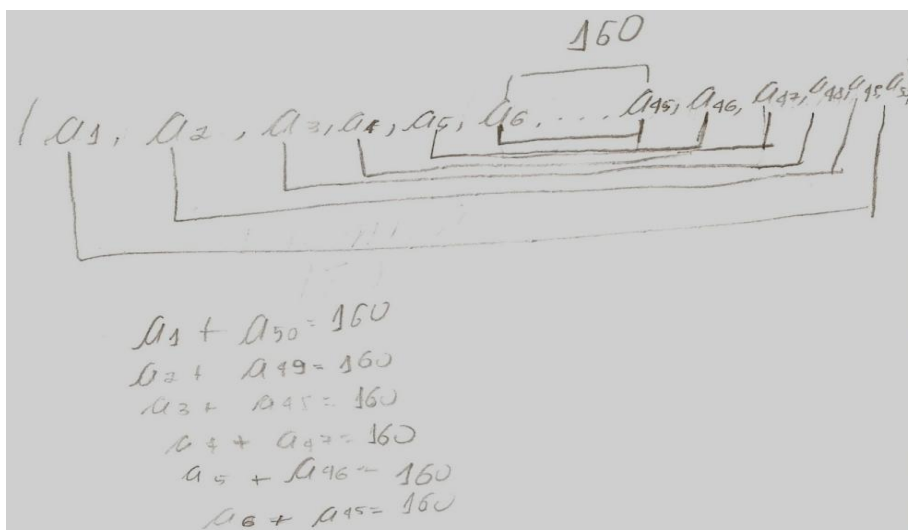 160
( a1, a2, a3, a4, a5, a6, .... a45, a46, a47, a48, a49, a5
a1 + a50 = 160
a2 + a49 = 160
a3 + a48 = 160
a4 + a47 = 160
a5 + a46 = 160
a6 + a45 = 160